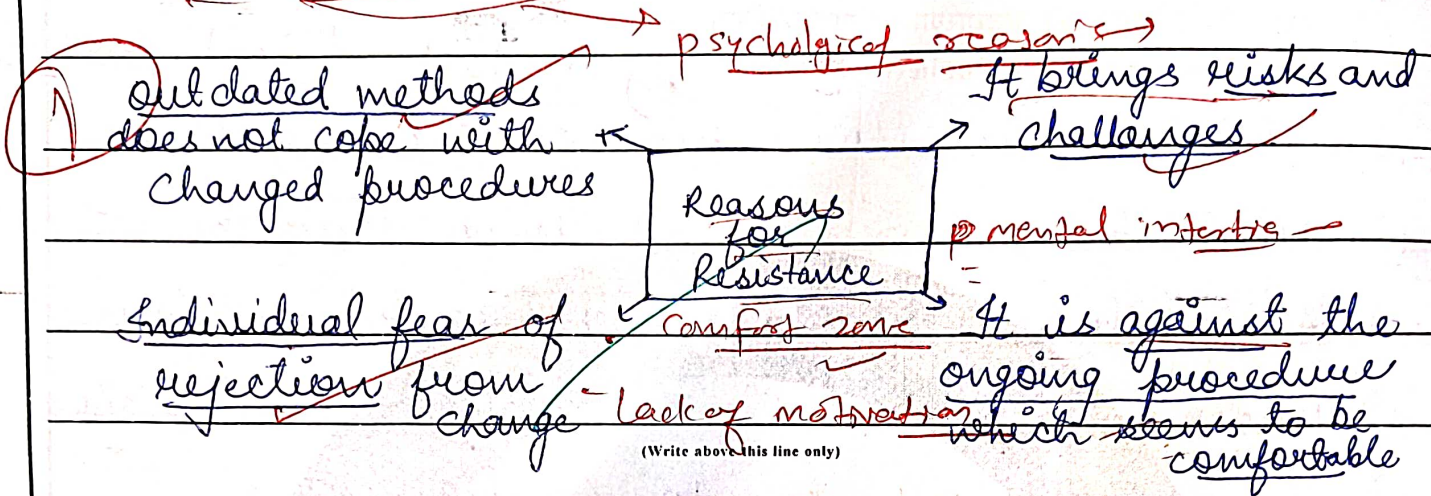 psycholgical reasons
outdated methods
does not cope with
changed procedures
It brings risks and
challanges
Reasons
for
Resistance
mental intertia
Individual fear of
rejection from
change
Comfort zone
Lack of motivation
It is against the
ongoing procedure
which seems to be
comfortable
(Write above this line only)